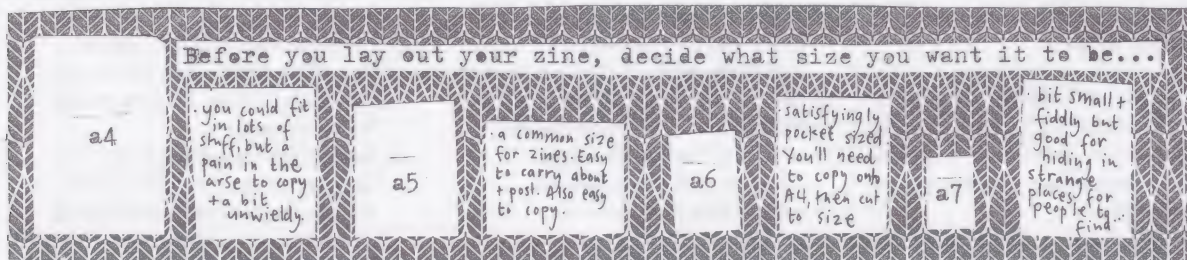 Before you lay out your zine, decide what size you want it to be...
a4
. you could fit
in lots of
stuff, but a
pain in the
arse to copy
+ a bit
unwieldy.
a5
. a common size
for zines. Easy
to carry about
+ post. Also easy
to copy.
a6
satisfyingly
pocket sized
You'll need
to copy onto
A4, then cut
to size
a7
. bit small +
fiddly but
good for
hiding in
strange
places for
people to...
find